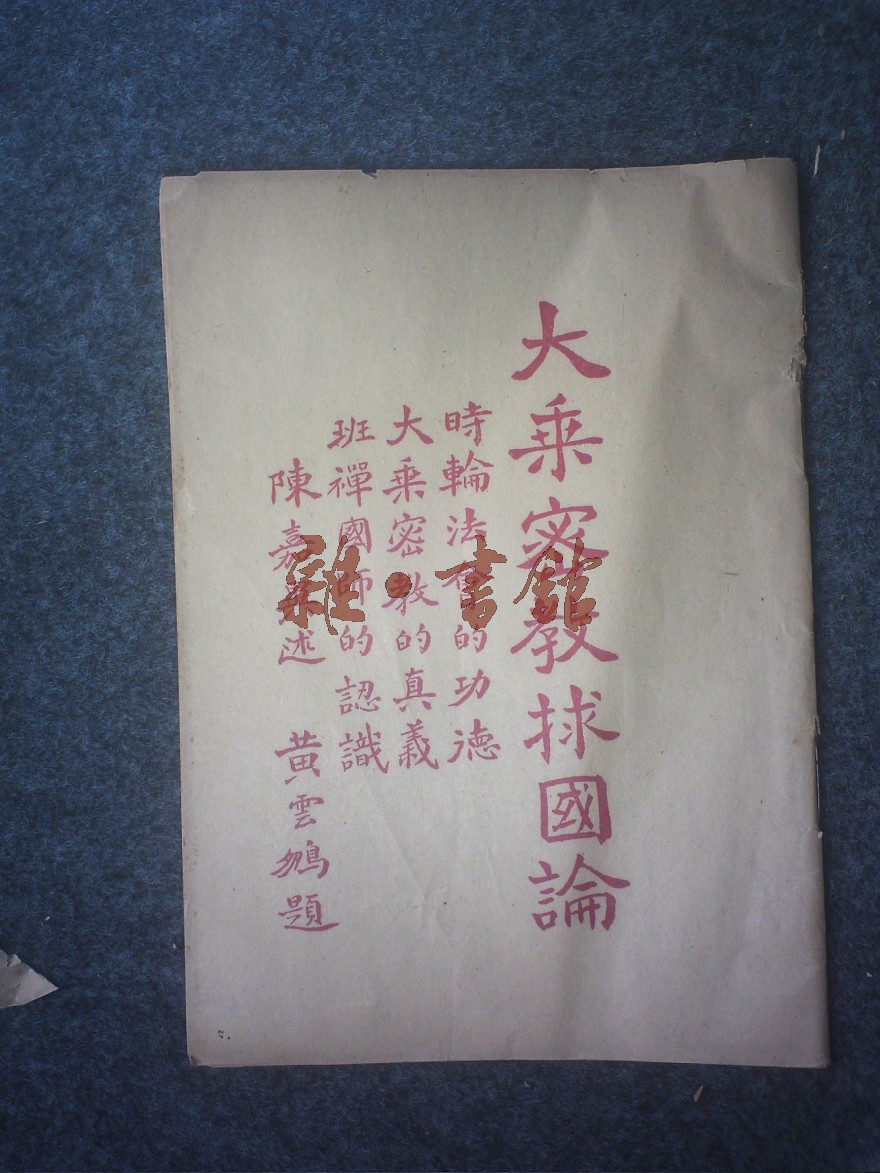 大乘密教捄國論
時輪法會的功德
大乘密教的真義
班禪國師的認識
陳嘉異述 黃雲鵬題
雜·書館